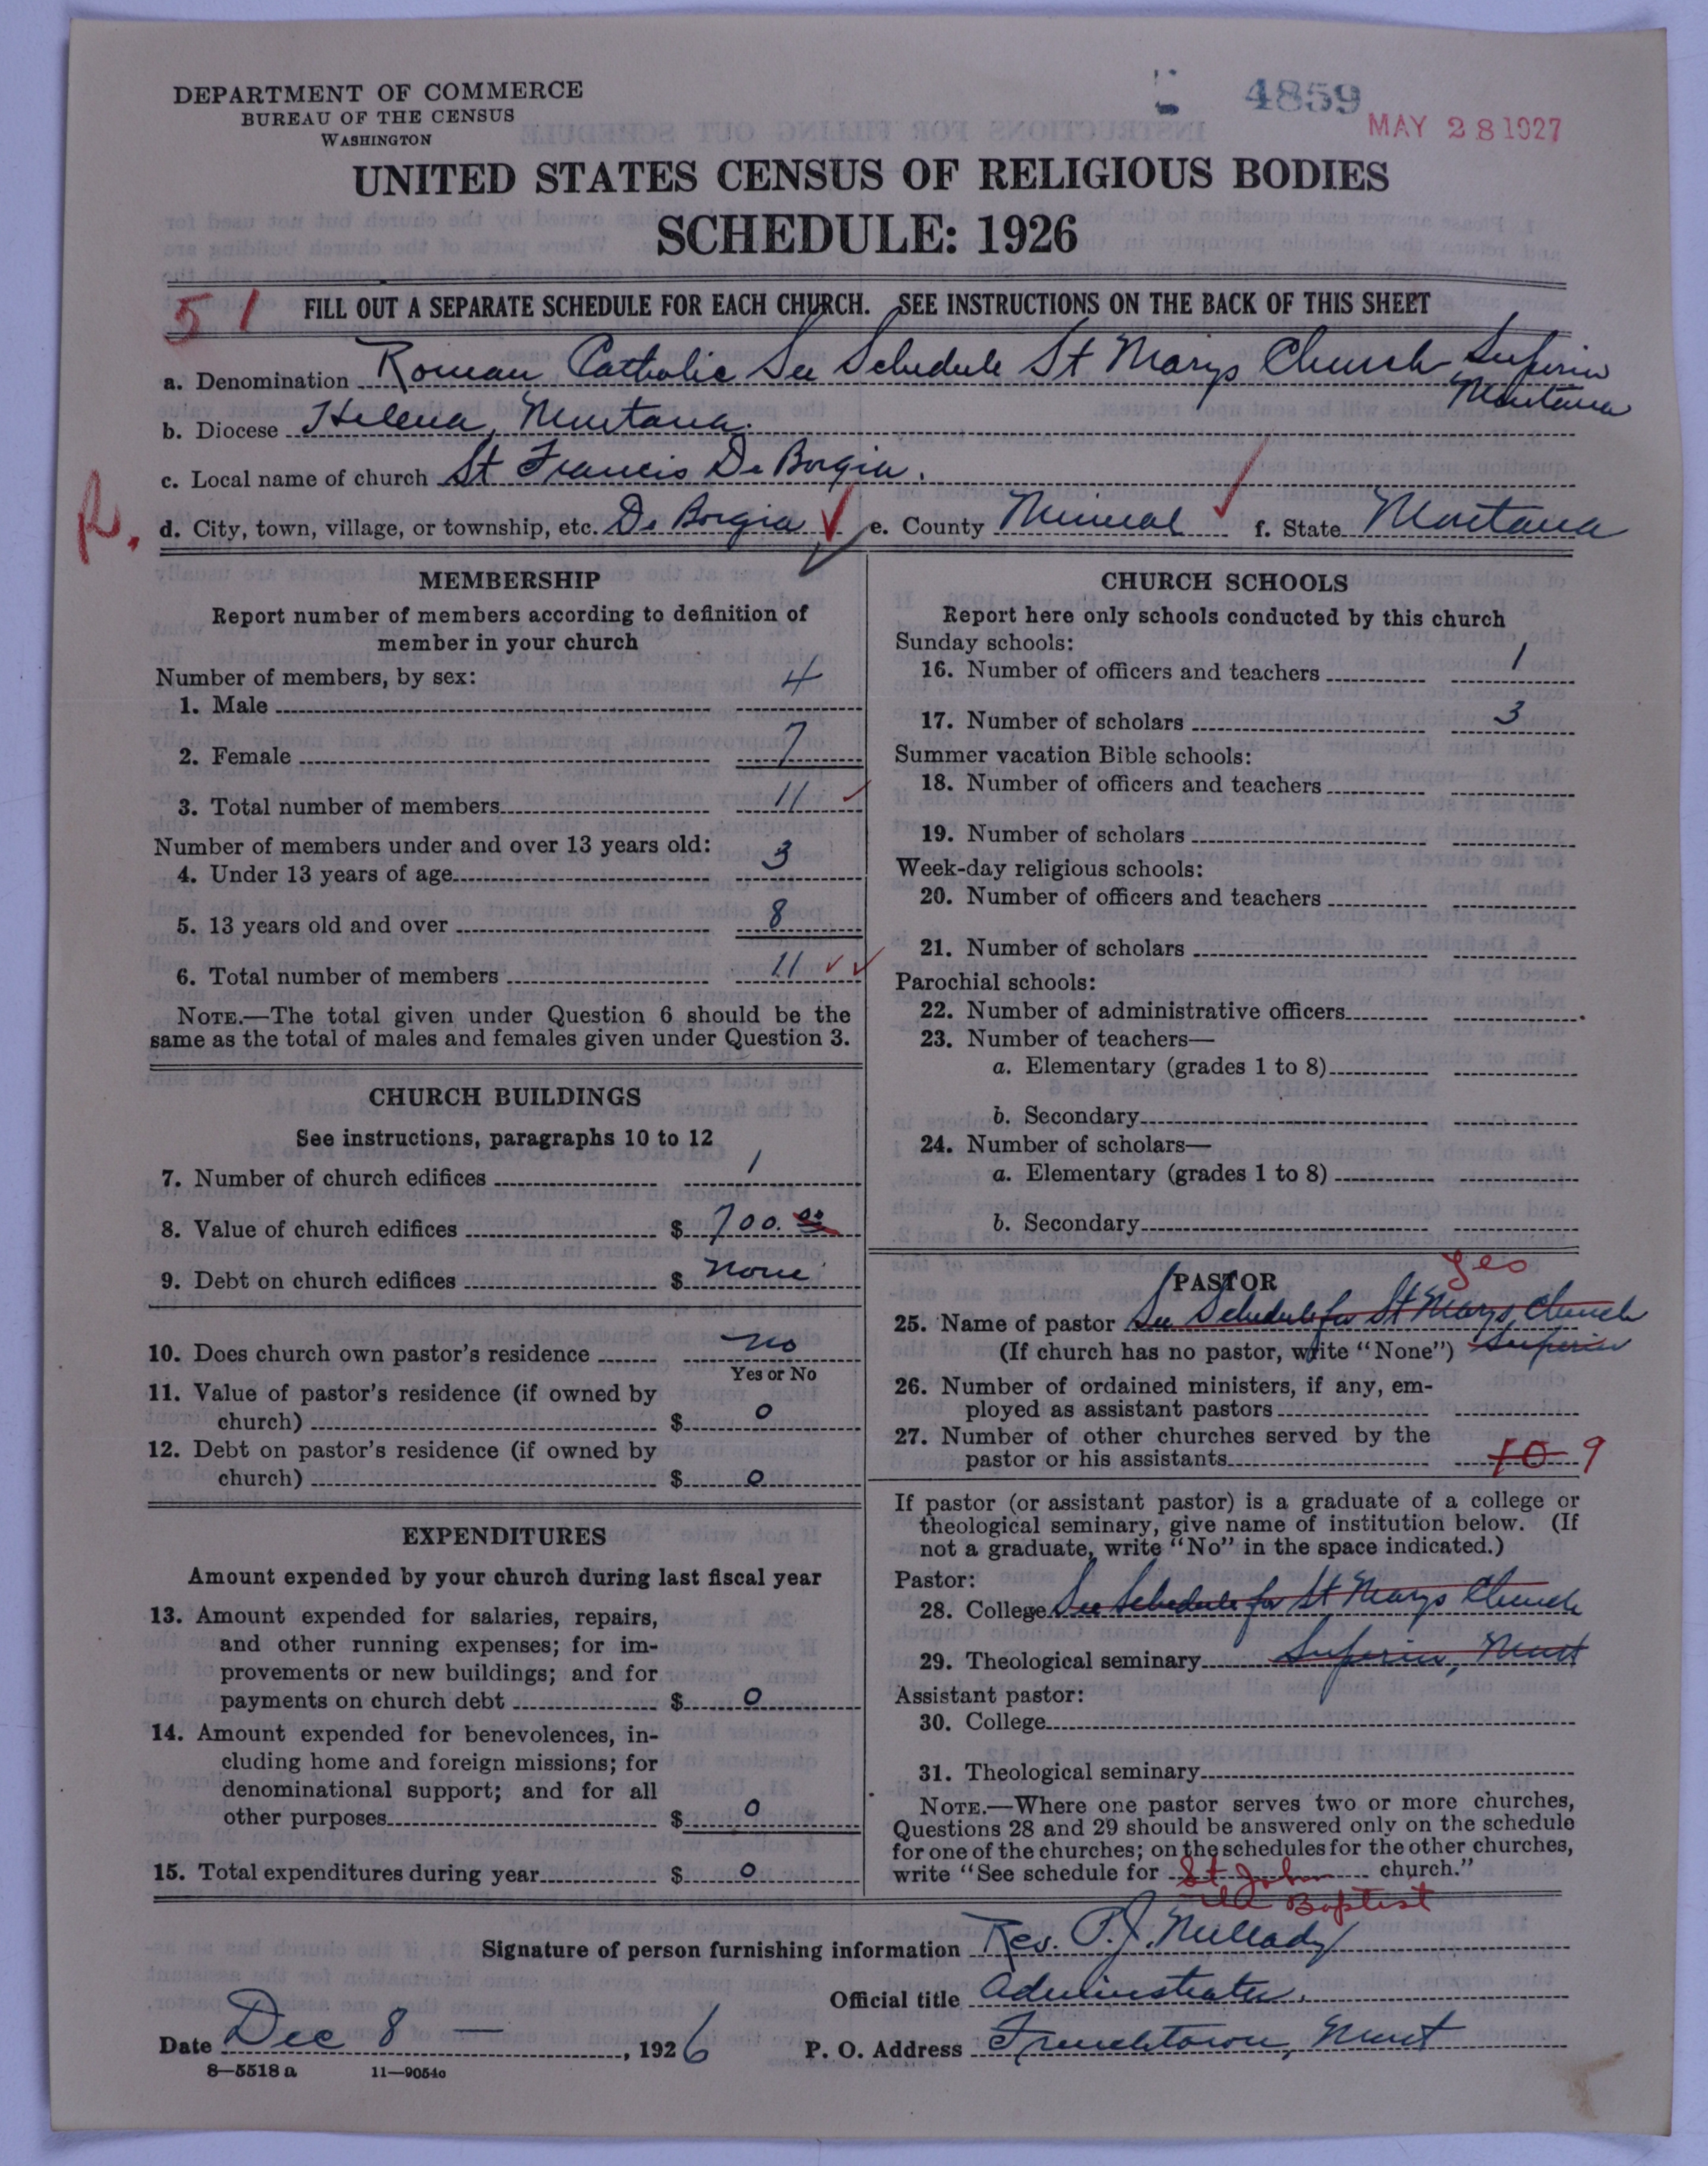 4859
MAY 28 1927
DEPARTMENT OF COMMERCE
BUREAU OF THE CENSUS
WASHINGTON
UNITED STATES CENSUS OF RELIGIOUS BODIES
SCHEDULE: 1926
51
FILL OUT A SEPARATE SCHEDULE FOR EACH CHURCH. SEE INSTRUCTIONS ON THE BACK OF THIS SHEET
a. Denomination Roman Catholic See Schedule St Marys Church Superior
Montana
b. Diocese Helena, Montana.
c. Local name of church St Francis De Borgia.
R.
d. City, town, village, or township, etc. De Borgia e. County Mineral f. State Montana
MEMBERSHIP
Report number of members according to definition of
member in your church
Number of members, by sex:
1. Male 4
2. Female 7
3. Total number of members 11
Number of members under and over 13 years old:
4. Under 13 years of age 3
5. 13 years old and over 8
6. Total number of members 11
NOTE.—The total given under Question 6 should be the
same as the total of males and females given under Question 3.
CHURCH BUILDINGS
See instructions, paragraphs 10 to 12
7. Number of church edifices 1
8. Value of church edifices $ 700.00
9. Debt on church edifices $ none
10. Does church own pastor's residence no
Yes or No
11. Value of pastor's residence (if owned by
church) $ 0
12. Debt on pastor's residence (if owned by
church) $ 0
EXPENDITURES
Amount expended by your church during last fiscal year
13. Amount expended for salaries, repairs,
and other running expenses; for im-
provements or new buildings; and for
payments on church debt $ 0
14. Amount expended for benevolences, in-
cluding home and foreign missions; for
denominational support; and for all
other purposes $ 0
15. Total expenditures during year $ 0
CHURCH SCHOOLS
Report here only schools conducted by this church
Sunday schools:
16. Number of officers and teachers 1
17. Number of scholars 3
Summer vacation Bible schools:
18. Number of officers and teachers
19. Number of scholars
Week-day religious schools:
20. Number of officers and teachers
21. Number of scholars
Parochial schools:
22. Number of administrative officers
23. Number of teachers—
a. Elementary (grades 1 to 8)
b. Secondary
24. Number of scholars—
a. Elementary (grades 1 to 8)
b. Secondary
yes
PASTOR
25. Name of pastor See Schedule for St Marys Church
(If church has no pastor, write "None") Superior
26. Number of ordained ministers, if any, em-
ployed as assistant pastors
27. Number of other churches served by the
pastor or his assistants 10 9
If pastor (or assistant pastor) is a graduate of a college or
theological seminary, give name of institution below. (If
not a graduate, write "No" in the space indicated.)
Pastor:
28. College See Schedule for St Marys Church
29. Theological seminary Superior, Mont
Assistant pastor:
30. College
31. Theological seminary
NOTE.—Where one pastor serves two or more churches,
Questions 28 and 29 should be answered only on the schedule
for one of the churches; on the schedules for the other churches,
write "See schedule for St John church."
the Baptist
Signature of person furnishing information Rev. P. J. Mellady
Official title Administrator.
Date Dec 8 — , 1926 P. O. Address Frenchtown, Mont
8—5518 a 11—9054c